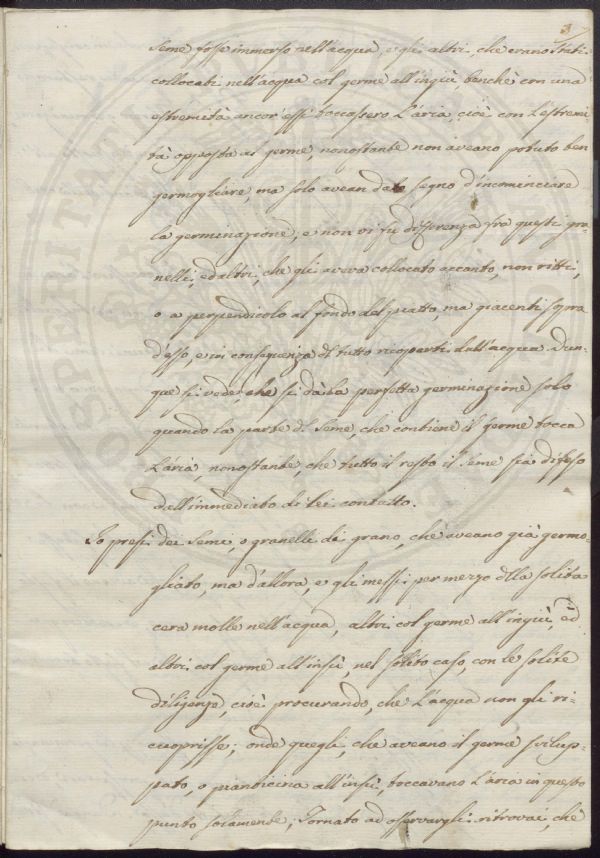 3
seme fosse immerso nell'acqua, e gli altri, che erano stati
collocati nell'acqua col germe all'ingiù, benchè con una
estremità ancor essi toccassero l'aria, cioè con l'estremi
tà opposta al germe, nonostante non aveano potuto ben
germogliare, ma solo avean dato segno d'incominciare
la germinazione, e non vi fù differenza fra questi gra
nelli, ed altri, che gli aveva collocato accanto, non ritti,
o a perpendicolo al fondo del piatto, ma giacenti sopra
d'esso, e in conseguenza di tutto ricoperti dall'acqua. Dun-
que si vede, che si dà la perfetta germinazione solo
quando la parte di seme, che contiene il germe tocca
l'aria, nonostante, che tutto il resto il seme sia difeso
dall'immediato di lei contatto.
Io presi dei semi, o granelli di grano, che aveano già germo-
gliato, ma d'allora, e gli messi per mezzo della solita
cera molle nell'acqua, altri col germe all'ingiù, ed
altri col germe all'insù, nel solito caso, con le solite
diligenze, cioè procurando, che l'acqua non gli ri-
cuoprisse; onde quegli, che aveano il germe svilup-
pato, o pianticina all'insù, toccavano l'aria in questo
punto solamente; Tornato ad osservargli ritrovai, che
PROSPERITATI PUBLICAE